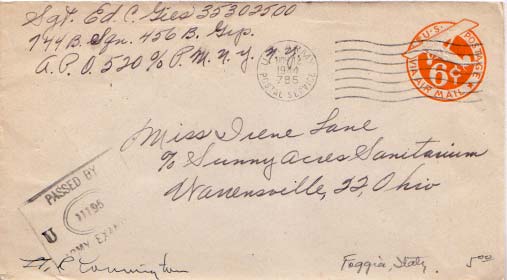 Sgt. Ed. C. Gies 35302500
744 B. Sqn. 456 B. Grp.
A.P.O. 520 c/o P.M. N.Y. N.Y.
U.S. ARMY
1944
785
POSTAL SERVICE
U.S. POSTAGE
6¢
VIA AIR MAIL
Miss Irene Lane
c/o Sunny Acres Sanitarium
Warrensville, 22, Ohio
PASSED BY
U
ARMY EXAM
Foggia, Italy
5.00